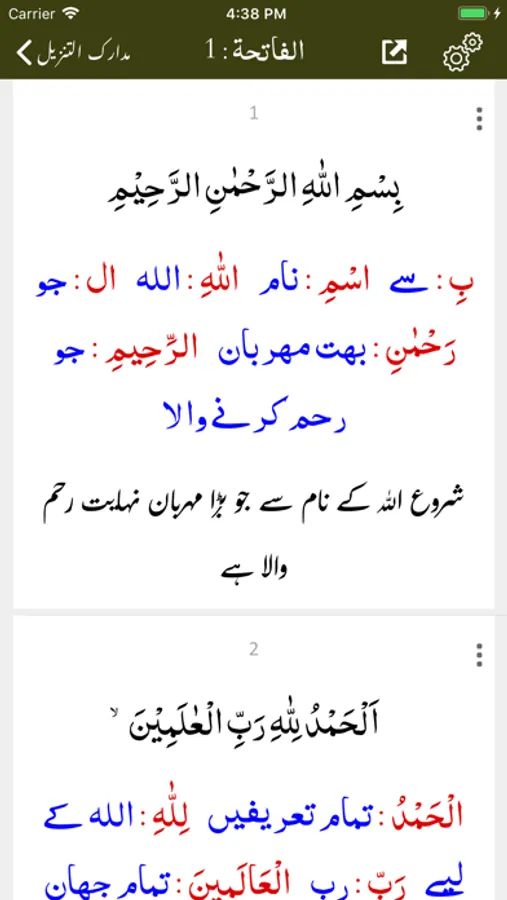 Carrier 4:38 PM
مدارک التنزیل الفاتحة : 1
1
بِسْمِ اللّٰهِ الرَّحْمٰنِ الرَّحِيْمِ
بِ: سے اسْمِ: نام اللّٰهِ: الله ال: جو
رَحْمٰنِ: بہت مہربان الرِّحِيمِ: جو
رحم کرنے والا
شروع اللہ کے نام سے جو بڑا مہربان نہایت رحم
والا ہے
2
اَلْحَمْدُ لِلّٰهِ رَبِّ الْعٰلَمِيْنَ ۙ
الْحَمْدُ: تمام تعریفیں لِلّٰهِ: الله کے
لیے رَبِّ: رب الْعَالَمِينَ: تمام جهان